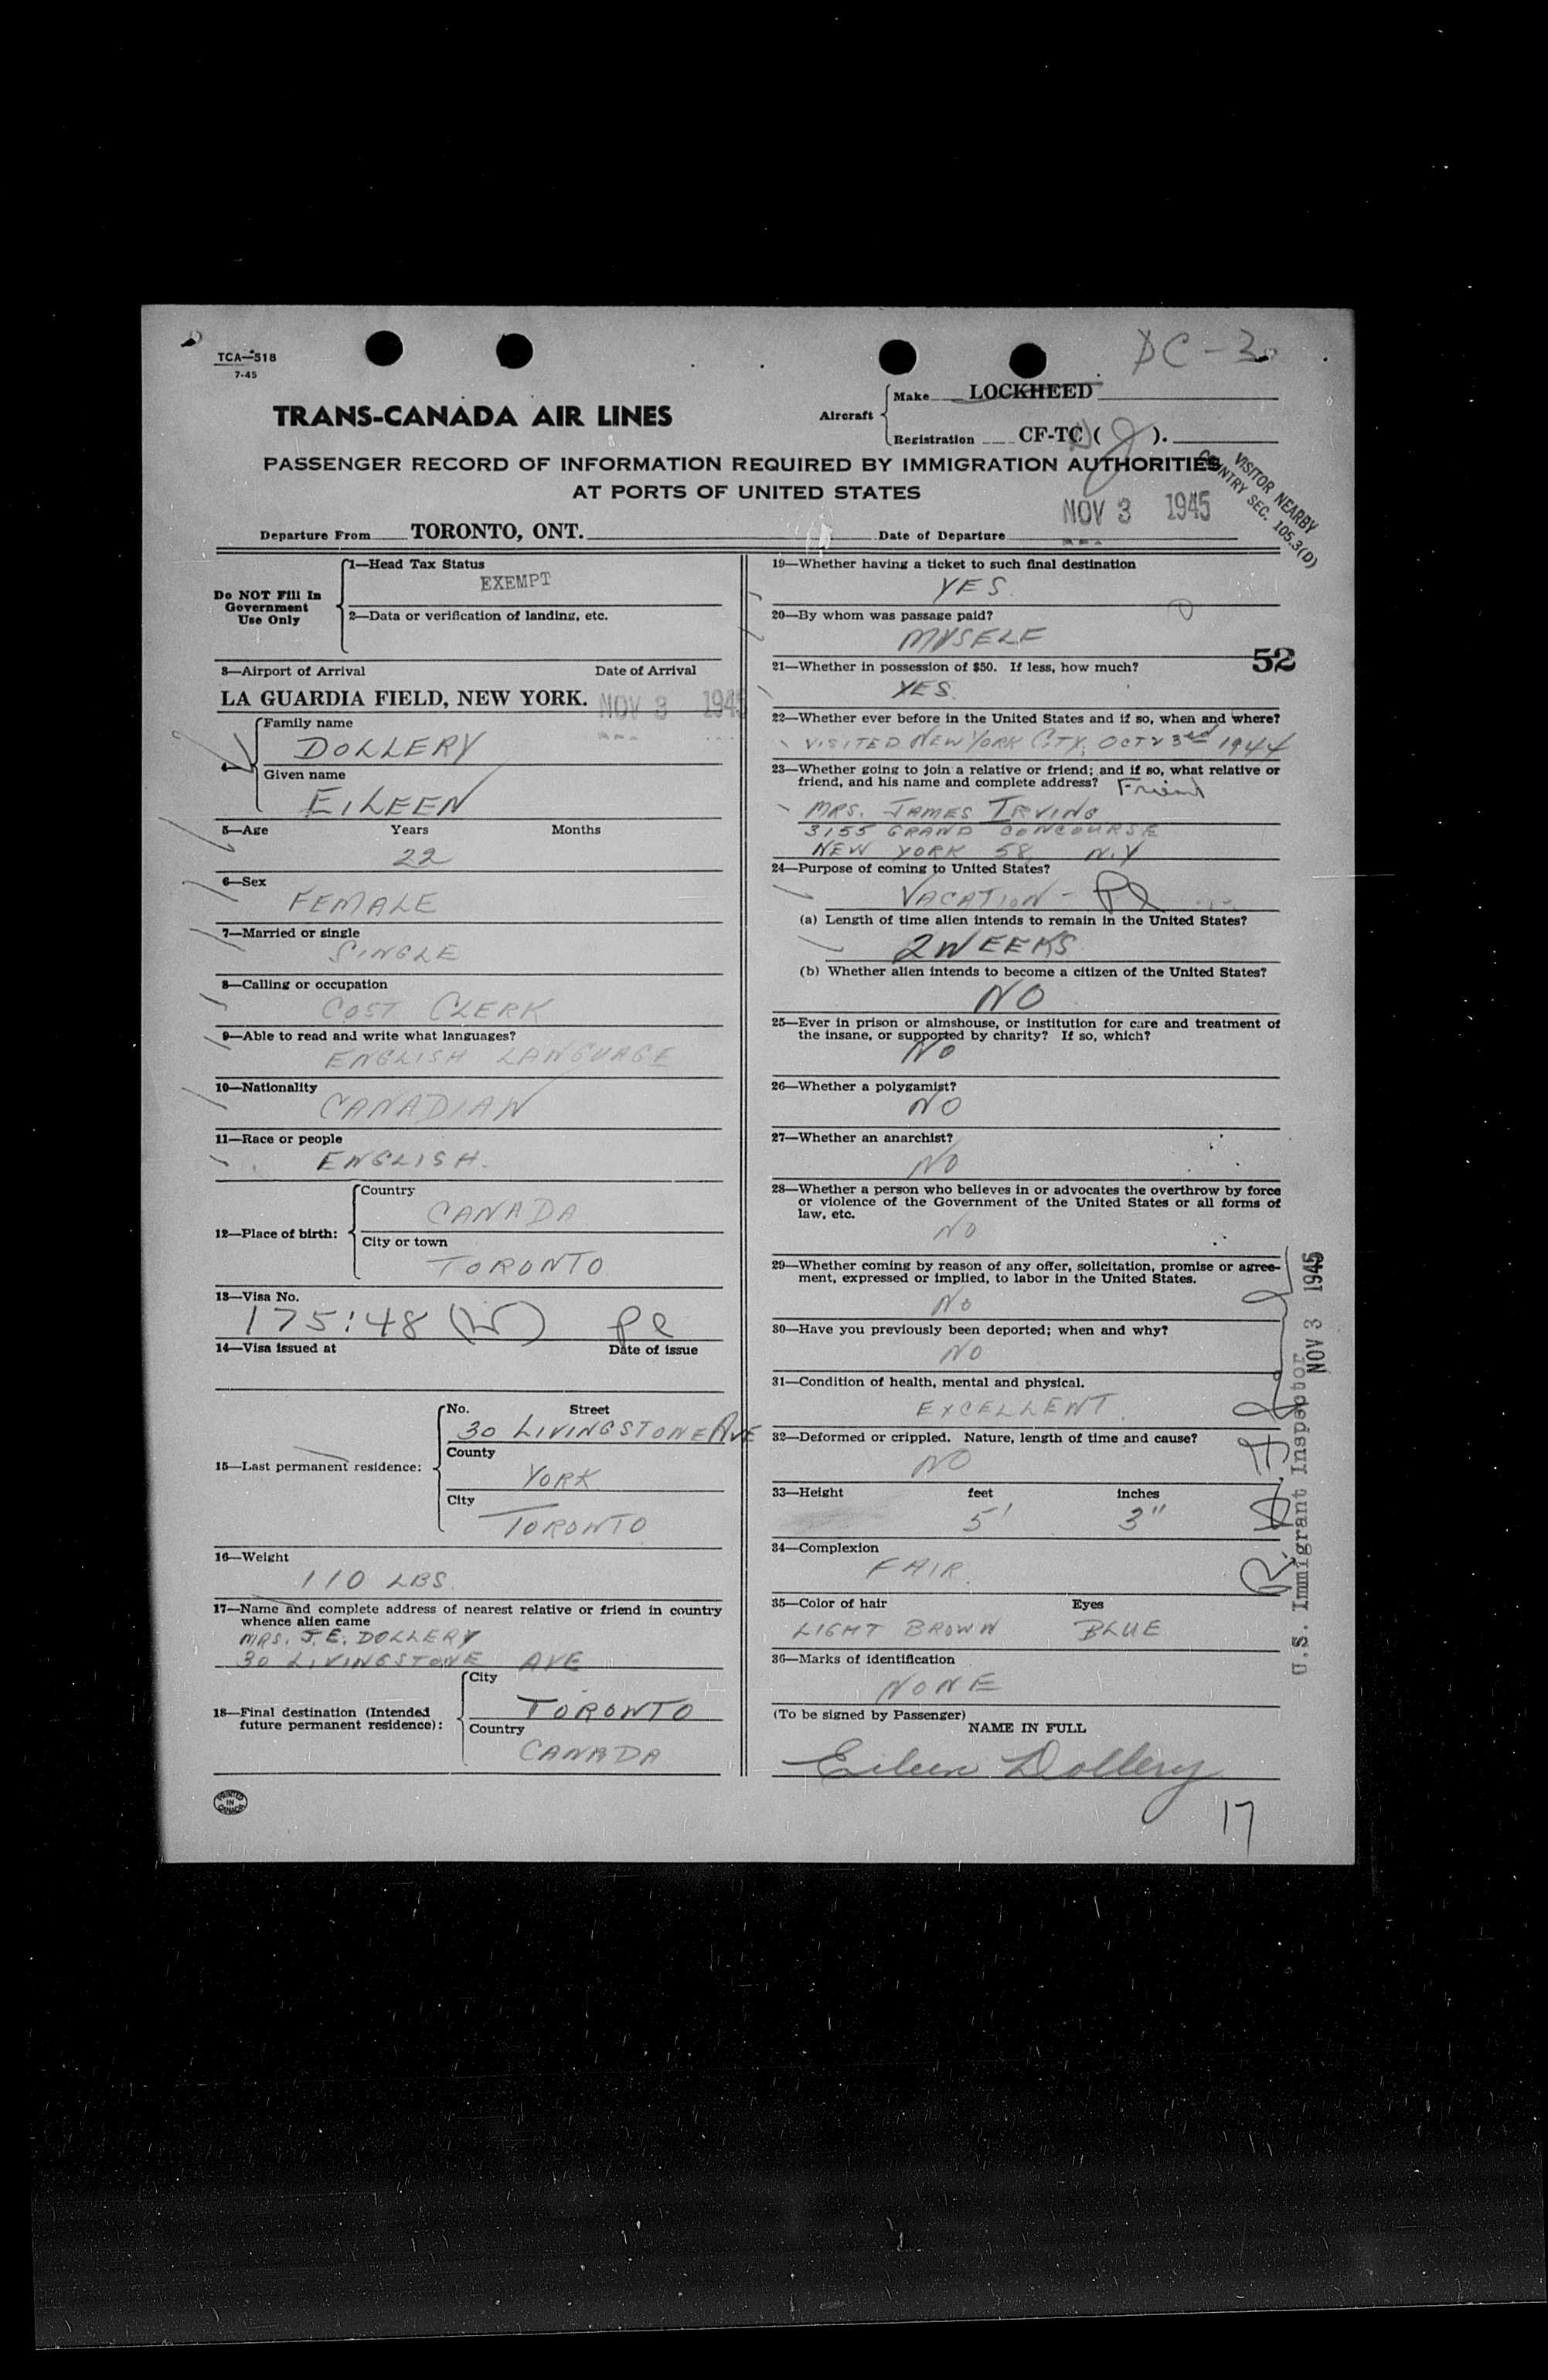 TCA—518
7-45
DC-3
TRANS-CANADA AIR LINES
Aircraft
Make LOCKHEED
Registration CF-TC ( J ).
PASSENGER RECORD OF INFORMATION REQUIRED BY IMMIGRATION AUTHORITIES
AT PORTS OF UNITED STATES
VISITOR NEARBY
COUNTRY SEC. 105.3(D)
Departure From TORONTO, ONT. Date of Departure NOV 3 1945
Do NOT Fill In
Government
Use Only
1—Head Tax Status
EXEMPT
2—Data or verification of landing, etc.
3—Airport of Arrival Date of Arrival
LA GUARDIA FIELD, NEW YORK. NOV 3 1945
4—
Family name
DOLLERY
Given name
EILEEN
5—Age Years Months
22
6—Sex
FEMALE
7—Married or single
SINGLE
8—Calling or occupation
COST CLERK
9—Able to read and write what languages?
ENGLISH LANGUAGE
10—Nationality
CANADIAN
11—Race or people
ENGLISH.
12—Place of birth:
Country
CANADA
City or town
TORONTO
13—Visa No.
175:48 (W)
14—Visa issued at Date of issue
15—Last permanent residence:
No. Street
30 LIVINGSTONE AVE
County
YORK
City
TORONTO
16—Weight
110 LBS.
17—Name and complete address of nearest relative or friend in country
whence alien came
MRS. J. E. DOLLERY
30 LIVINGSTONE AVE
18—Final destination (Intended
future permanent residence):
City
TORONTO
Country
CANADA
PRINTED
IN
CANADA
19—Whether having a ticket to such final destination
YES.
20—By whom was passage paid?
MYSELF
52
21—Whether in possession of $50. If less, how much?
YES.
22—Whether ever before in the United States and if so, when and where?
VISITED NEW YORK CITY, OCT 23rd 1944
23—Whether going to join a relative or friend; and if so, what relative or
friend, and his name and complete address? Friend
MRS. JAMES IRVING
3155 GRAND CONCOURSE
NEW YORK 58, N.Y
24—Purpose of coming to United States?
VACATION -
(a) Length of time alien intends to remain in the United States?
2 WEEKS
(b) Whether alien intends to become a citizen of the United States?
NO
25—Ever in prison or almshouse, or institution for care and treatment of
the insane, or supported by charity? If so, which?
NO
26—Whether a polygamist?
NO
27—Whether an anarchist?
NO
28—Whether a person who believes in or advocates the overthrow by force
or violence of the Government of the United States or all forms of
law, etc.
NO
29—Whether coming by reason of any offer, solicitation, promise or agree-
ment, expressed or implied, to labor in the United States.
NO
30—Have you previously been deported; when and why?
NO
31—Condition of health, mental and physical.
EXCELLENT.
32—Deformed or crippled. Nature, length of time and cause?
NO
33—Height feet inches
5' 3"
34—Complexion
FAIR.
35—Color of hair Eyes
LIGHT BROWN BLUE
36—Marks of identification
NONE
(To be signed by Passenger)
NAME IN FULL
Eileen Dollery
17
U.S. Immigrant Inspector
NOV 3 1945